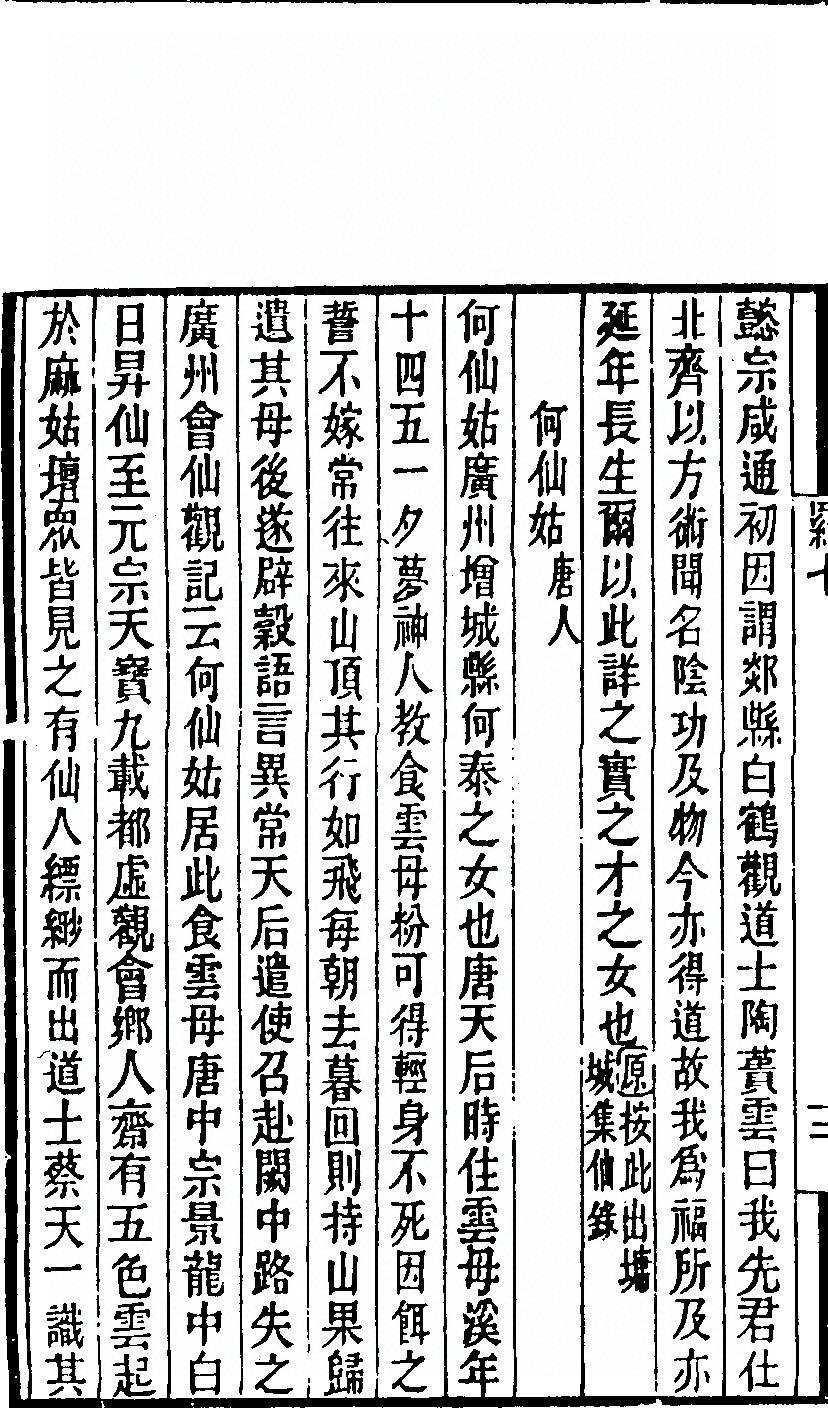 懿宗咸通初因謂郯縣白鶴觀道士陶蕡雲曰我先君仕
北齊以方術聞名陰功及物今亦得道故我為福所及亦
延年長生爾以此詳之實之才之女也原按此出墉城集仙錄
何仙姑唐人
何仙姑廣州增城縣何泰之女也唐天后時住雲母溪年
十四五一夕夢神人教食雲母粉可得輕身不死因餌之
誓不嫁常往來山頂其行如飛每朝去暮回則持山果歸
遺其母後遂辟穀語言異常天后遣使召赴闕中路失之
廣州會仙觀記云何仙姑居此食雲母唐中宗景龍中白
日昇仙至元宗天寶九載都虛觀會鄉人齋有五色雲起
於麻姑壇眾皆見之有仙人縹緲而出道士蔡天一識其